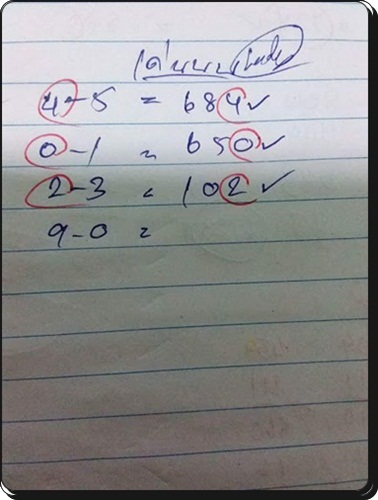 เด่นบน
4-5 = 684✓
0-1 = 650✓
2-3 = 102✓
9-0 =